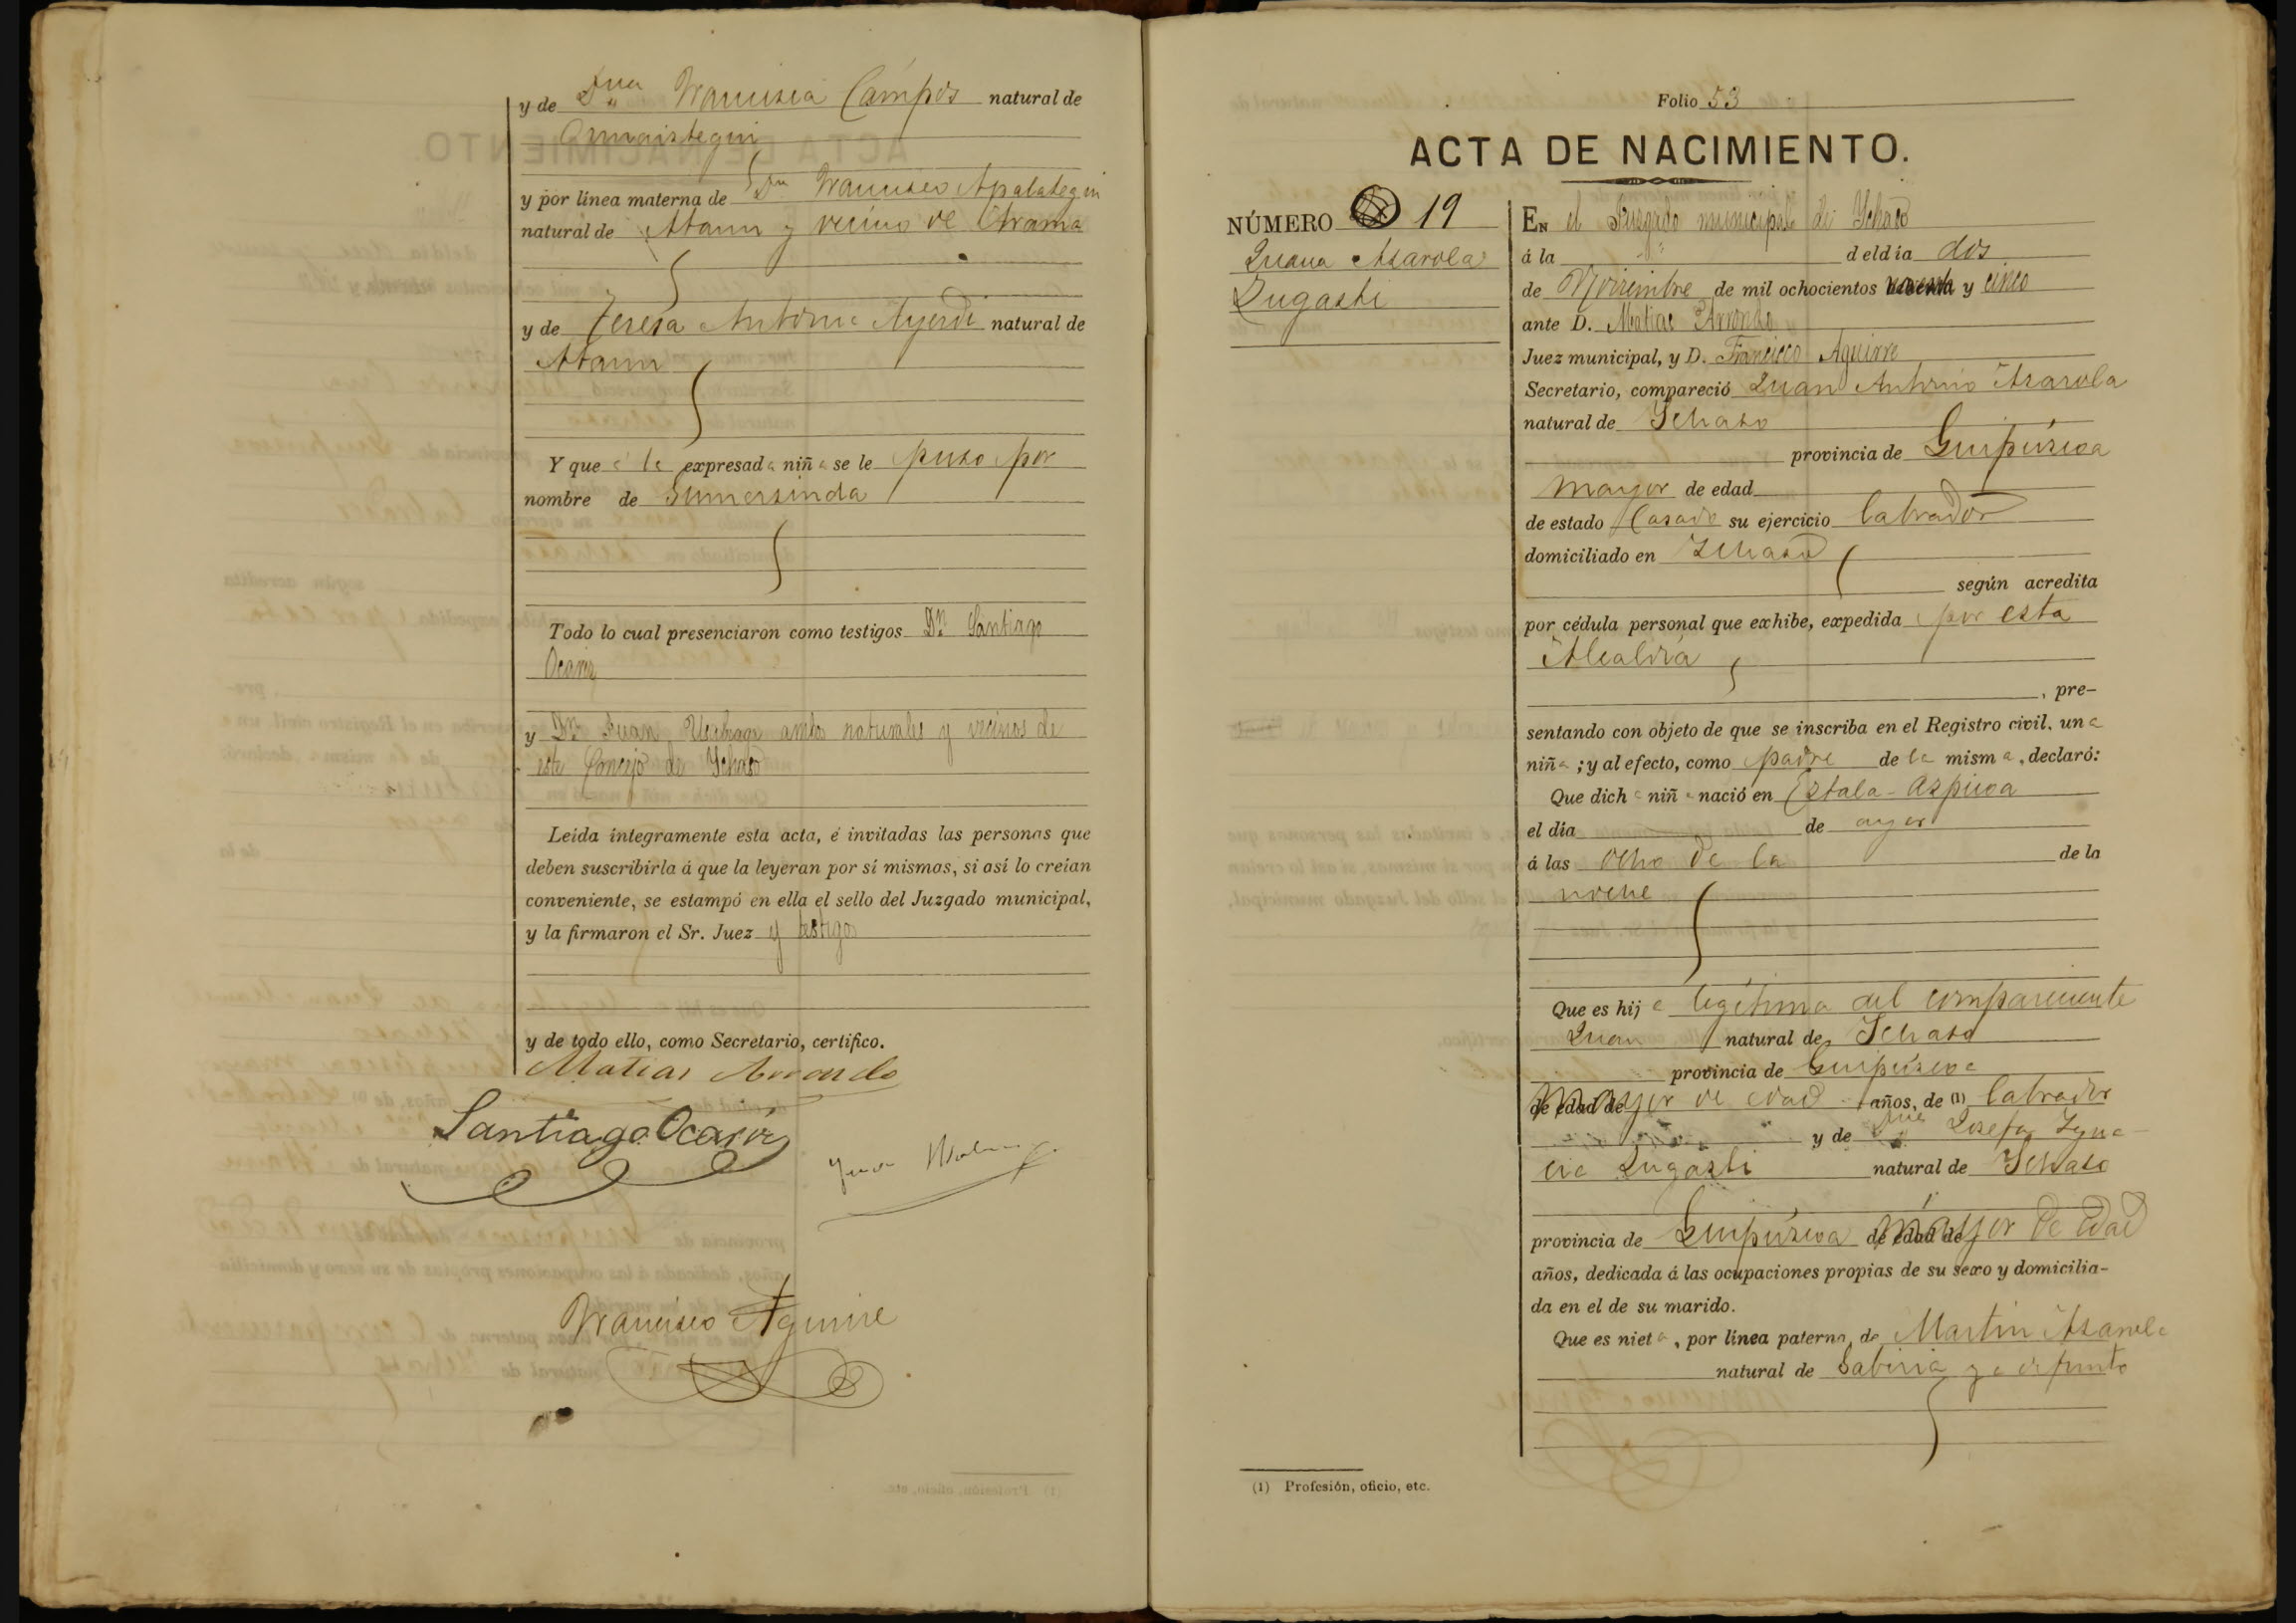 y de Dña Francisca Campos natural de
Ormaiztegui
y por línea materna de Dn Francisco Apalategui
natural de Ataun y vecino de
y de Teresa Antonia Ayerdi natural de
Ataun
Y que á la expresada niña se le puso por
nombre de Gumersinda
Todo lo cual presenciaron como testigos Dn. Santiago
Ocariz
y Dn. Juan ambos naturales y vecinos de
este Concejo de Ichaso
Leída íntegramente esta acta, é invitadas las personas que
deben suscribirla á que la leyeran por sí mismas, si así lo creían
conveniente, se estampó en ella el sello del Juzgado municipal,
y la firmaron el Sr. Juez y testigos
y de todo ello, como Secretario, certifico.
Matias Arrondo
Santiago Ocariz
Juan
Francisco Aguirre
Folio 53
ACTA DE NACIMIENTO.
NÚMERO 19
Juana Azarola
Lugasti
EN el Juzgado municipal de Ichaso
á la del día dos
de Noviembre de mil ochocientos y cinco
ante D. Matias Arrondo
Juez municipal, y D. Francisco Aguirre
Secretario, compareció Juan Antonio Azarola
natural de Ichaso
provincia de Guipúzcoa
mayor de edad
de estado Casado su ejercicio labrador
domiciliado en Ichaso
según acredita
por cédula personal que exhibe, expedida por esta
Alcaldia
, pre-
sentando con objeto de que se inscriba en el Registro civil, una
niña; y al efecto, como padre de la misma, declaró:
Que dicha niña nació en Eztala-Azpicoa
el día de ayer
á las ocho de la de la
noche
Que es hija legítima del compareciente
Juan natural de Ichaso
provincia de Guipúzcoa
de edad de Mayor de edad años, de (1) labrador
y de Dña Josefa Igna-
cia Lugasti natural de Ichaso
provincia de Guipúzcoa de edad de mayor de edad
años, dedicada á las ocupaciones propias de su sexo y domicilia-
da en el de su marido.
Que es nieta, por línea paterna, de Martin Azarola
natural de Gabiria ya difunto
(1) Profesión, oficio, etc.